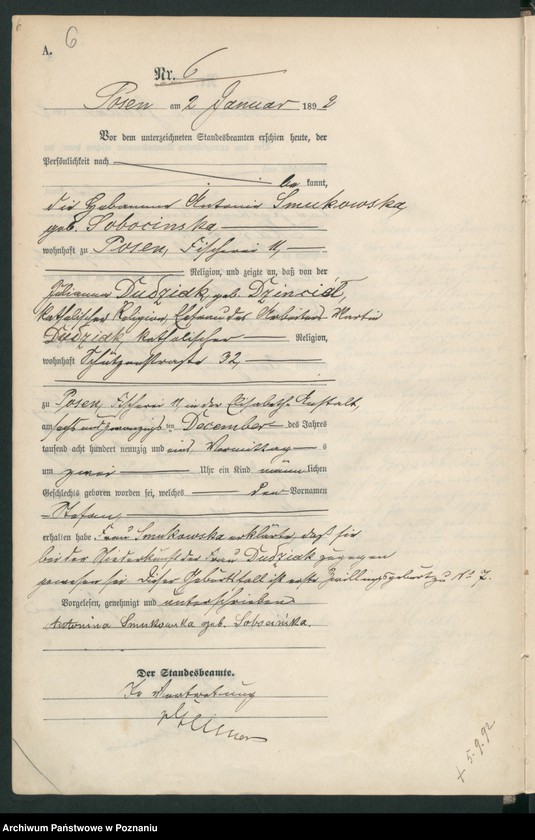 A. 6
Nr. 6
Posen am 2 Januar 1892
Vor dem unterzeichneten Standesbeamten erschien heute, der
Persönlichkeit nach
be kannt,
die Hebamme Antonie Smukowska,
geb. Sobocinska
wohnhaft zu Posen, Fischerei 11,
Religion, und zeigte an, daß von der
Julianna Dudziak, geb. Dzincioł,
katholischer Religion, Ehefrau des Arbeiters Martin
Dudziak katholischer Religion,
wohnhaft Schützenstrasse 32,
zu Posen, Fischerei 11, in der Elisabeth Anstalt,
am sechs und zwanzigsten December des Jahres
tausend acht hundert neunzig und eins Vormittag s
um zwei Uhr ein Kind männlichen
Geschlechts geboren worden sei, welches den Vornamen
Stefan,
erhalten habe. Frau Smukowska erklärte, daß sie
bei der Niederkunft der Frau Dudziak zugegen
gewesen sei. Dieser Geburtsfall ist erste Zwillingsgeburt zu No 7.
Vorgelesen, genehmigt und unterschrieben
Antonina Smukowska geb. Sobocińska.
Der Standesbeamte.
In Vertretung
+ 5.9.92
Archiwum Państwowe w Poznaniu